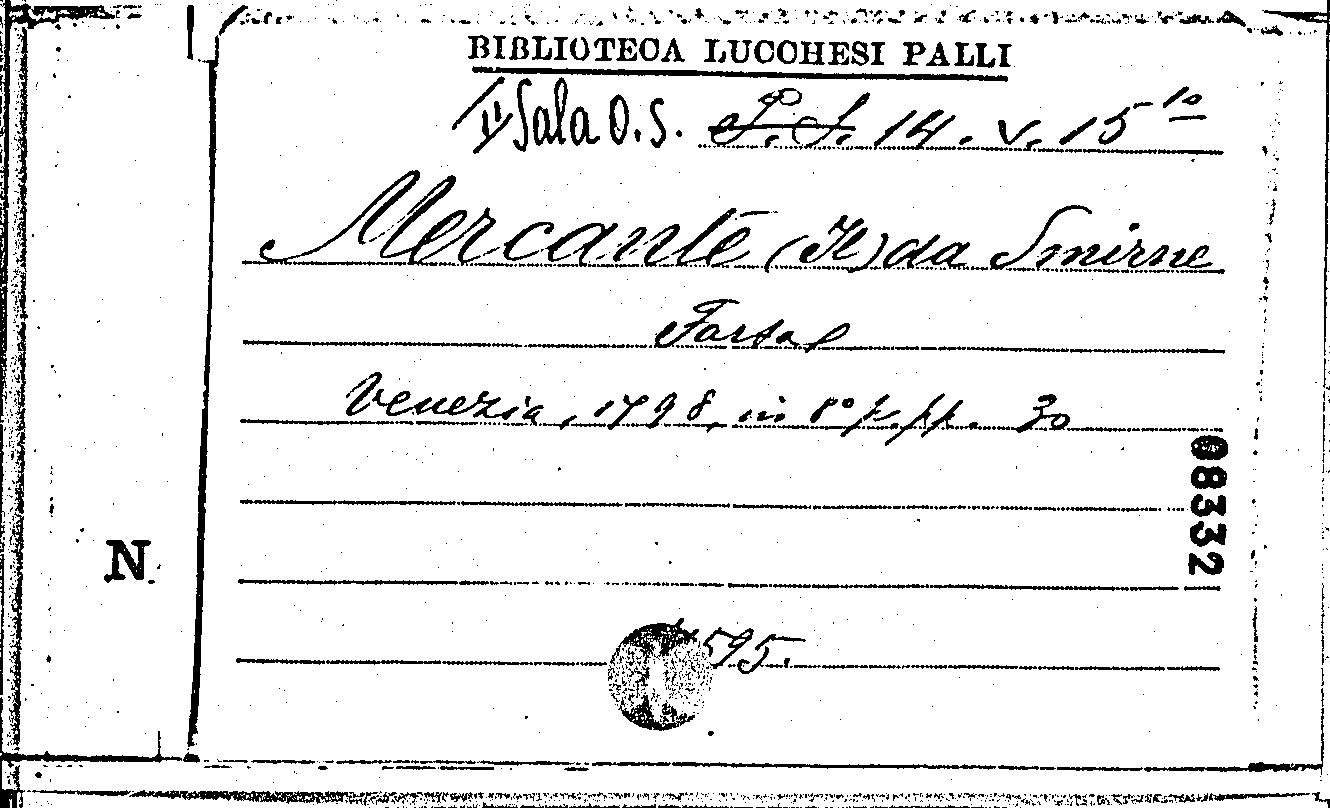 BIBLIOTECA LUCCHESI PALLI
II Sala O.S. P.S. 14. V. 15 1º
Mercante (Il) da Smirne
Farsa
Venezia, 1798, in 8º p. pp. 30
08332
N.
595.